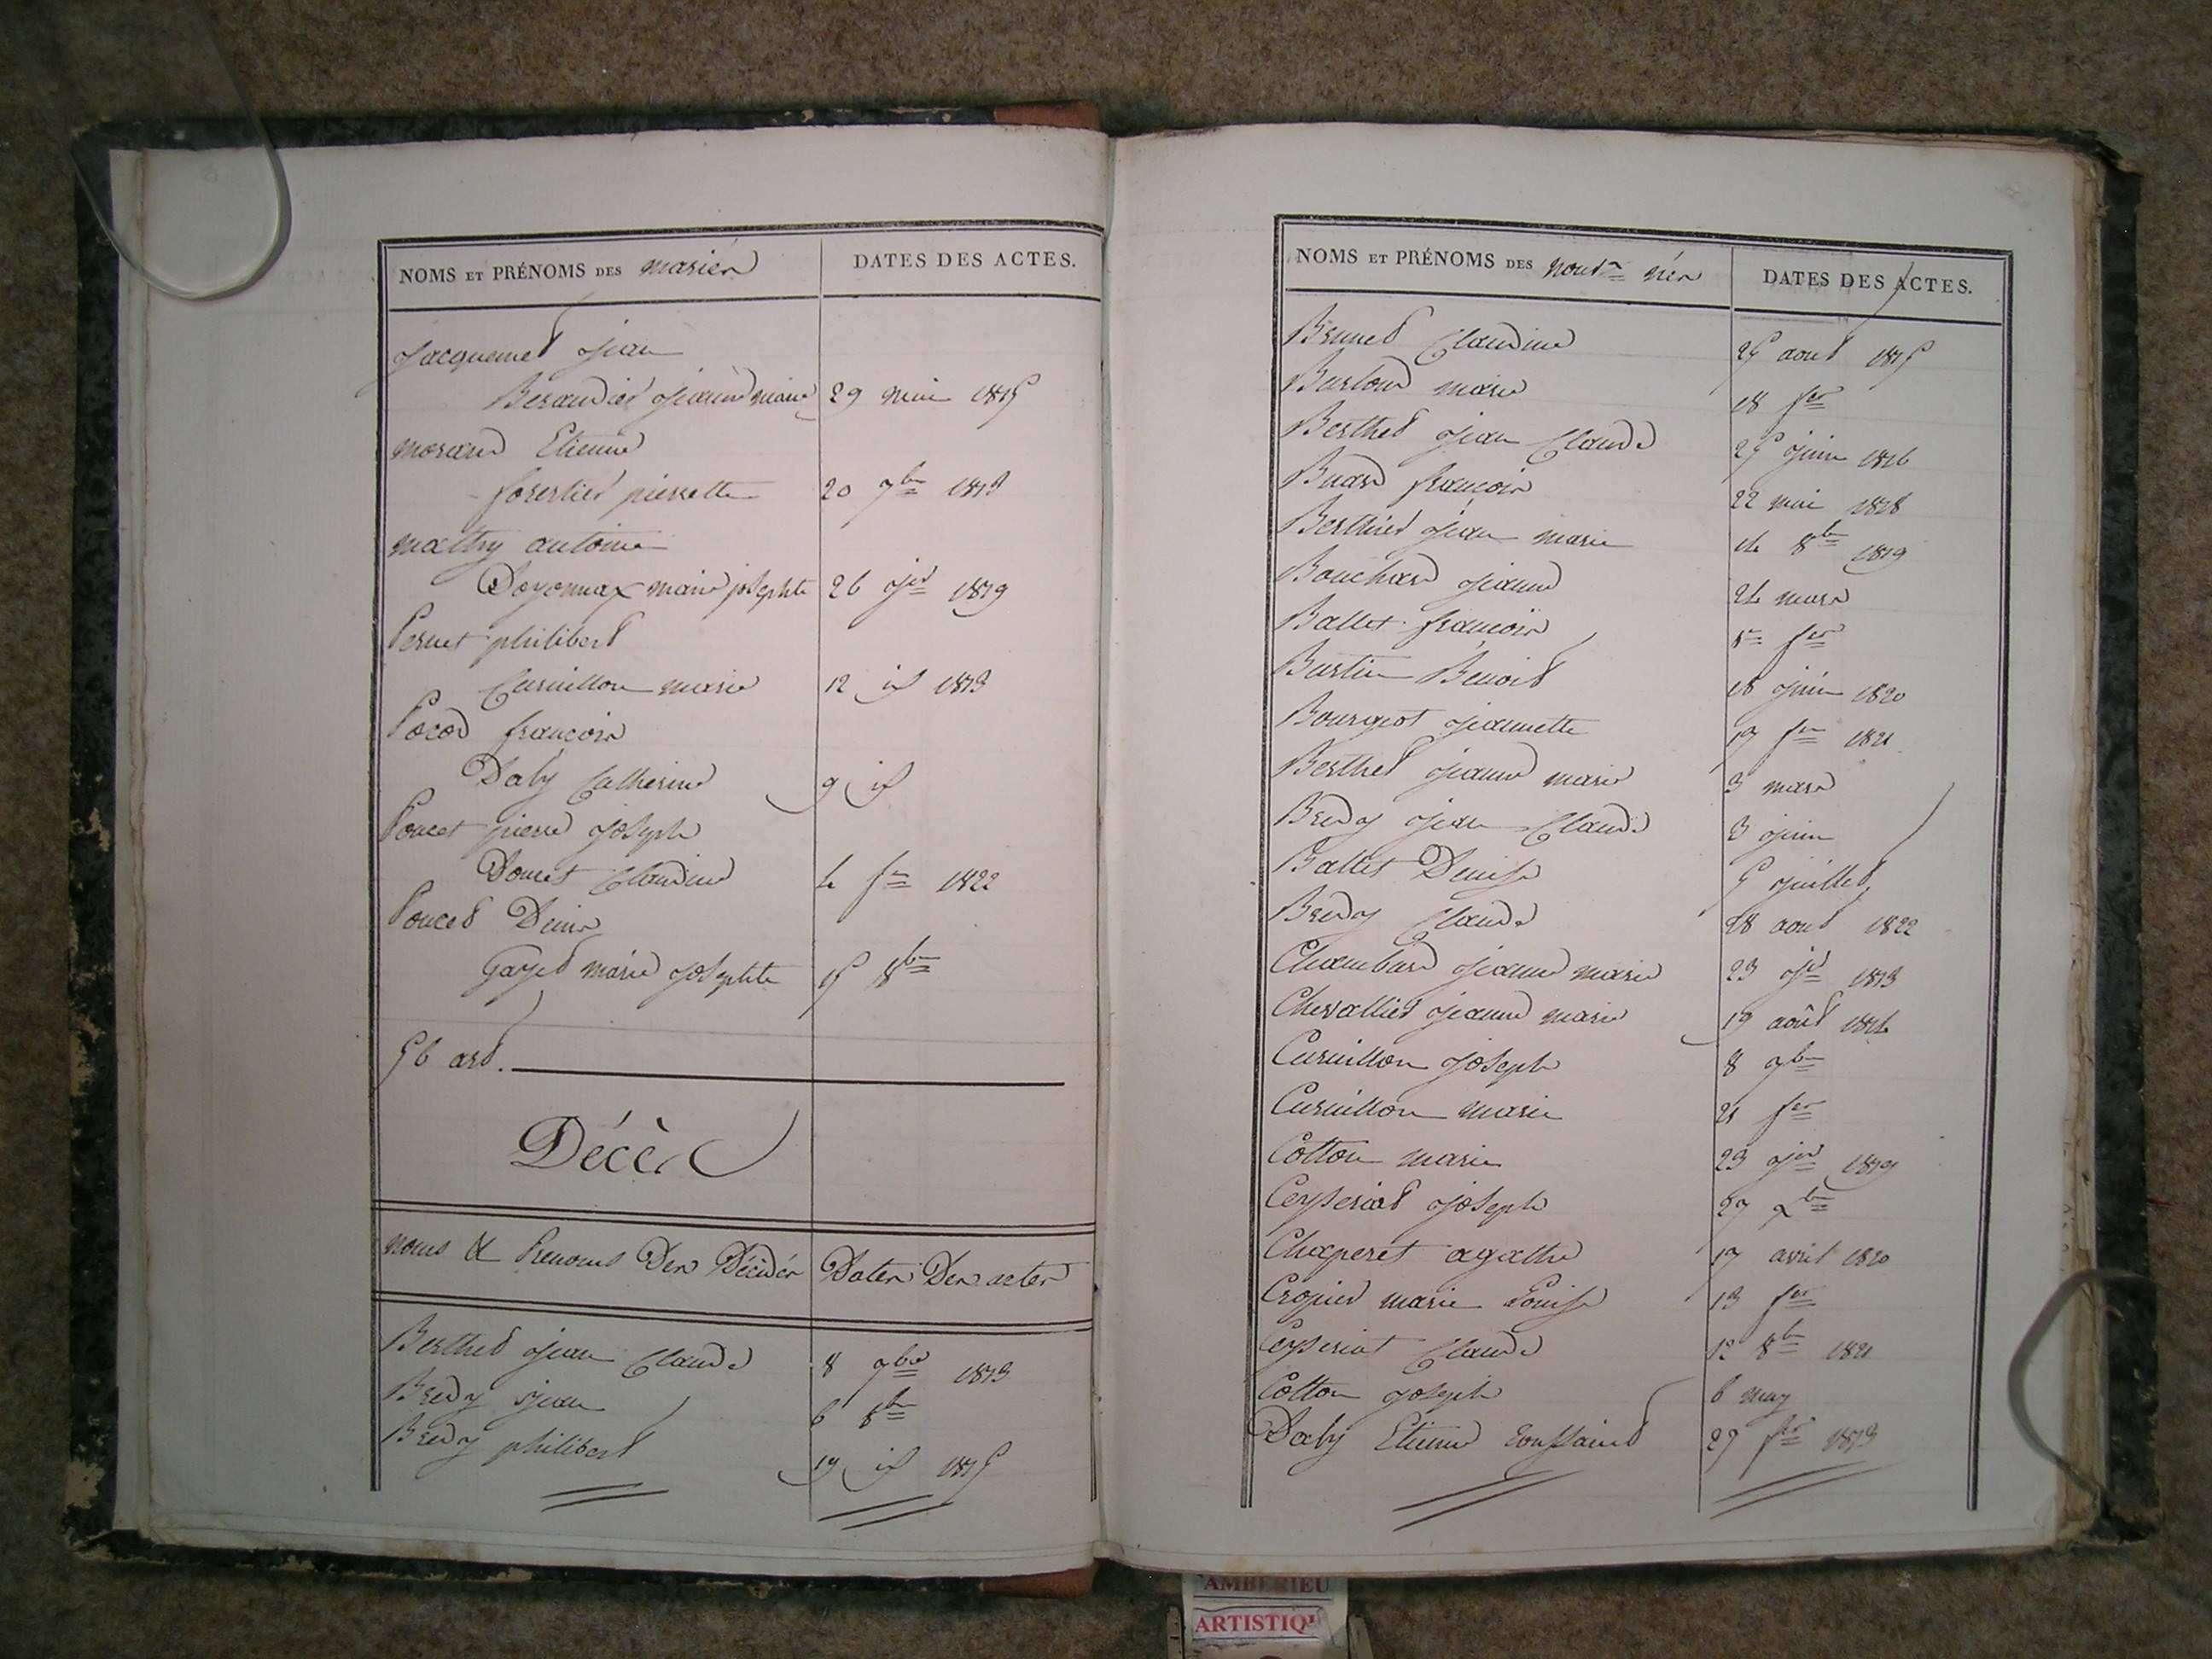 NOMS ET PRÉNOMS DES mariés DATES DES ACTES.
Jacquemet jean
Beraudier jeanne marie 29 mai 1815
morand Etienne
forestier pierrette 20 7bre 1813
mathy antoine
Doyonnax marie josephte 26 jer 1819
Pernet philibert
Curvillon marie 12 id 1813
Pocod françois
Daby Catherine 9 id
Poncet pierre joseph
Donnet Claudine 4 fer 1822
Poncet Denis
Gayet marie josephte 15 8bre
56 art.
Décès
noms & Prenoms Des Décédés Dates Des actes
Berthet jean Claude 8 7bre 1813
Bredy jean 6 8bre
Bredy philibert 19 id 1815
NOMS ET PRÉNOMS DES nouvx nés DATES DES ACTES.
Brunet Claudine 25 aout 1815
Burtond marie 18 fer
Berthet jean Claude 25 juin 1816
Buard françois 22 mai 1818
Berthier jean marie 14 8bre 1819
Bouchard jeanne 24 mars
Ballet françois 1er fer
Burtin Benoit 18 juin 1820
Bourgeot jeannette 17 fer 1821
Berthet jeanne marie 3 mars
Bredy jean Claude 3 juin
Ballet Denise 5 juillet
Bredy Claude 28 aout 1822
Chambard jeanne marie 23 jer 1813
Chevallier jeanne marie 19 août 1814
Curvillon joseph 8 9bre
Curvillon marie 21 fer
Cotton marie 23 jer 1819
Ceyseriat joseph 27 xbre
Chaperet agathe 17 avril 1820
Cropier marie Louise 13 fer
Ceyseriat Claude 12 8bre 1821
Cotton joseph 6 may
Daby Etienne Toussaint 27 fer 1813
AMBERIEU
ARTISTIQ